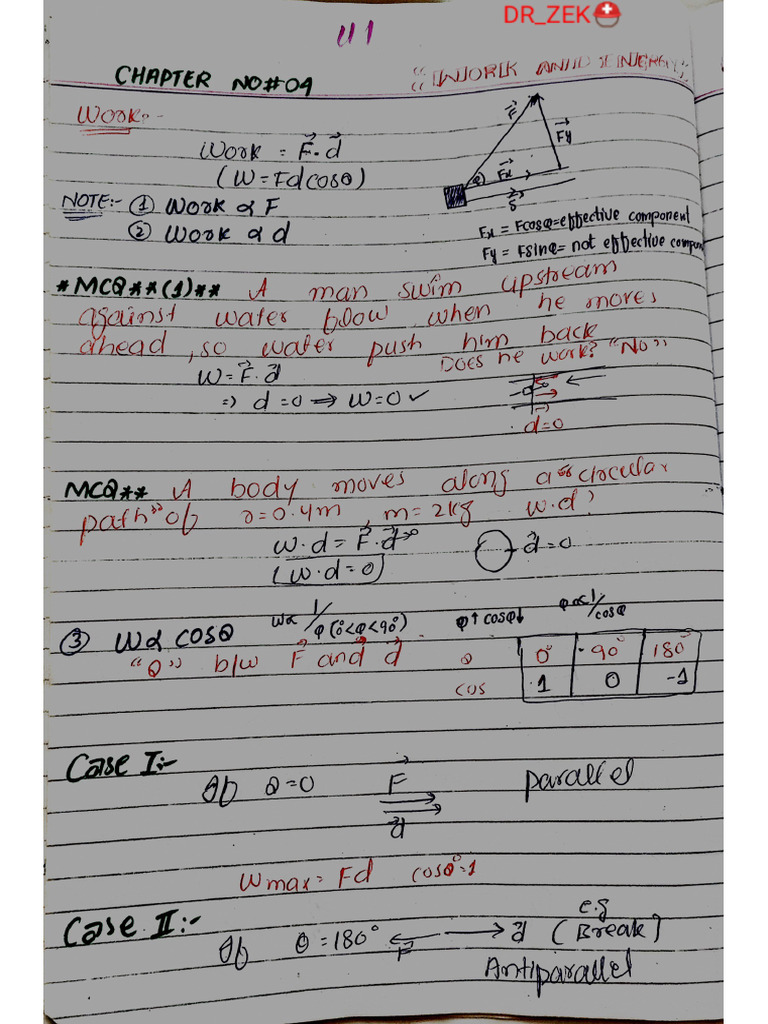 DR_ZEK
41
CHAPTER NO#04 "WORK AND ENERGY"
Work:-
Work = F⃗.d⃗
(W=Fdcosθ)
NOTE:- ① Work ∝ F
② Work ∝ d
F⃗ F⃗y
θ F⃗x
S⃗
Fx = Fcosθ=effective component
Fy = Fsinθ= not effective compon
*MCQ**(1)** A man swim upstream
against water flow when he moves
ahead, so water push him back
Does he work? "No"
W=F⃗.d⃗
=> d=0 → W=0 ✓
d=0
MCQ** A body moves along a "circular
path" of r=0.4m, m=2kg w.d?
w.d = F⃗.d⃗ 0
(w.d=0)
d⃗=0
③ W∝ cosθ W∝ 1/θ (0°<θ<90°) θ↑ cosθ↓ θ∝1/cosθ
"θ" b/w F⃗ and d⃗
θ 0° 90° 180°
cos 1 0 -1
Case I:-
If θ=0 F⃗ parallel
d⃗
Wmax = Fd cos0°=1
Case II:-
e.g
If θ=180° F⃗ d⃗ (Break)
Antiparallel